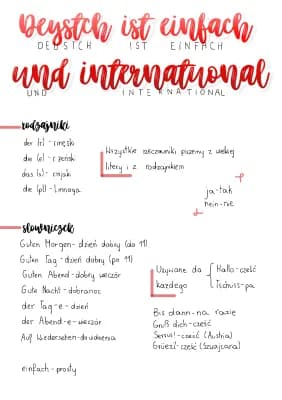 Deystch ist einfach
DEUSICH IST EINFACH
und international
UND INTERNATIONAL
rodzajniki
der (r) - męski
die (e) - żeński
das (s) - nijaki
die (pl) - l.mnoga
Wszystkie rzeczowniki piszemy z wielkiej
litery i z rodzajnikiem
ja - tak
nein - nie
słowniczek
Guten Morgen - dzień dobry (do 11)
Guten Tag - dzień dobry (po 11)
Guten Abend - dobry wieczór
Gute Nacht - dobranoc
der Tag - e - dzień
der Abend - e - wieczór
Auf Wiedersehen - do widzenia
einfach - prosty
Używane do każdego
Hallo - cześć
Tschüss - pa
Bis dann - na razie
Gruß dich - cześć
Servus! - cześć (Austria)
Grüezi! - cześć (Szwajcaria)